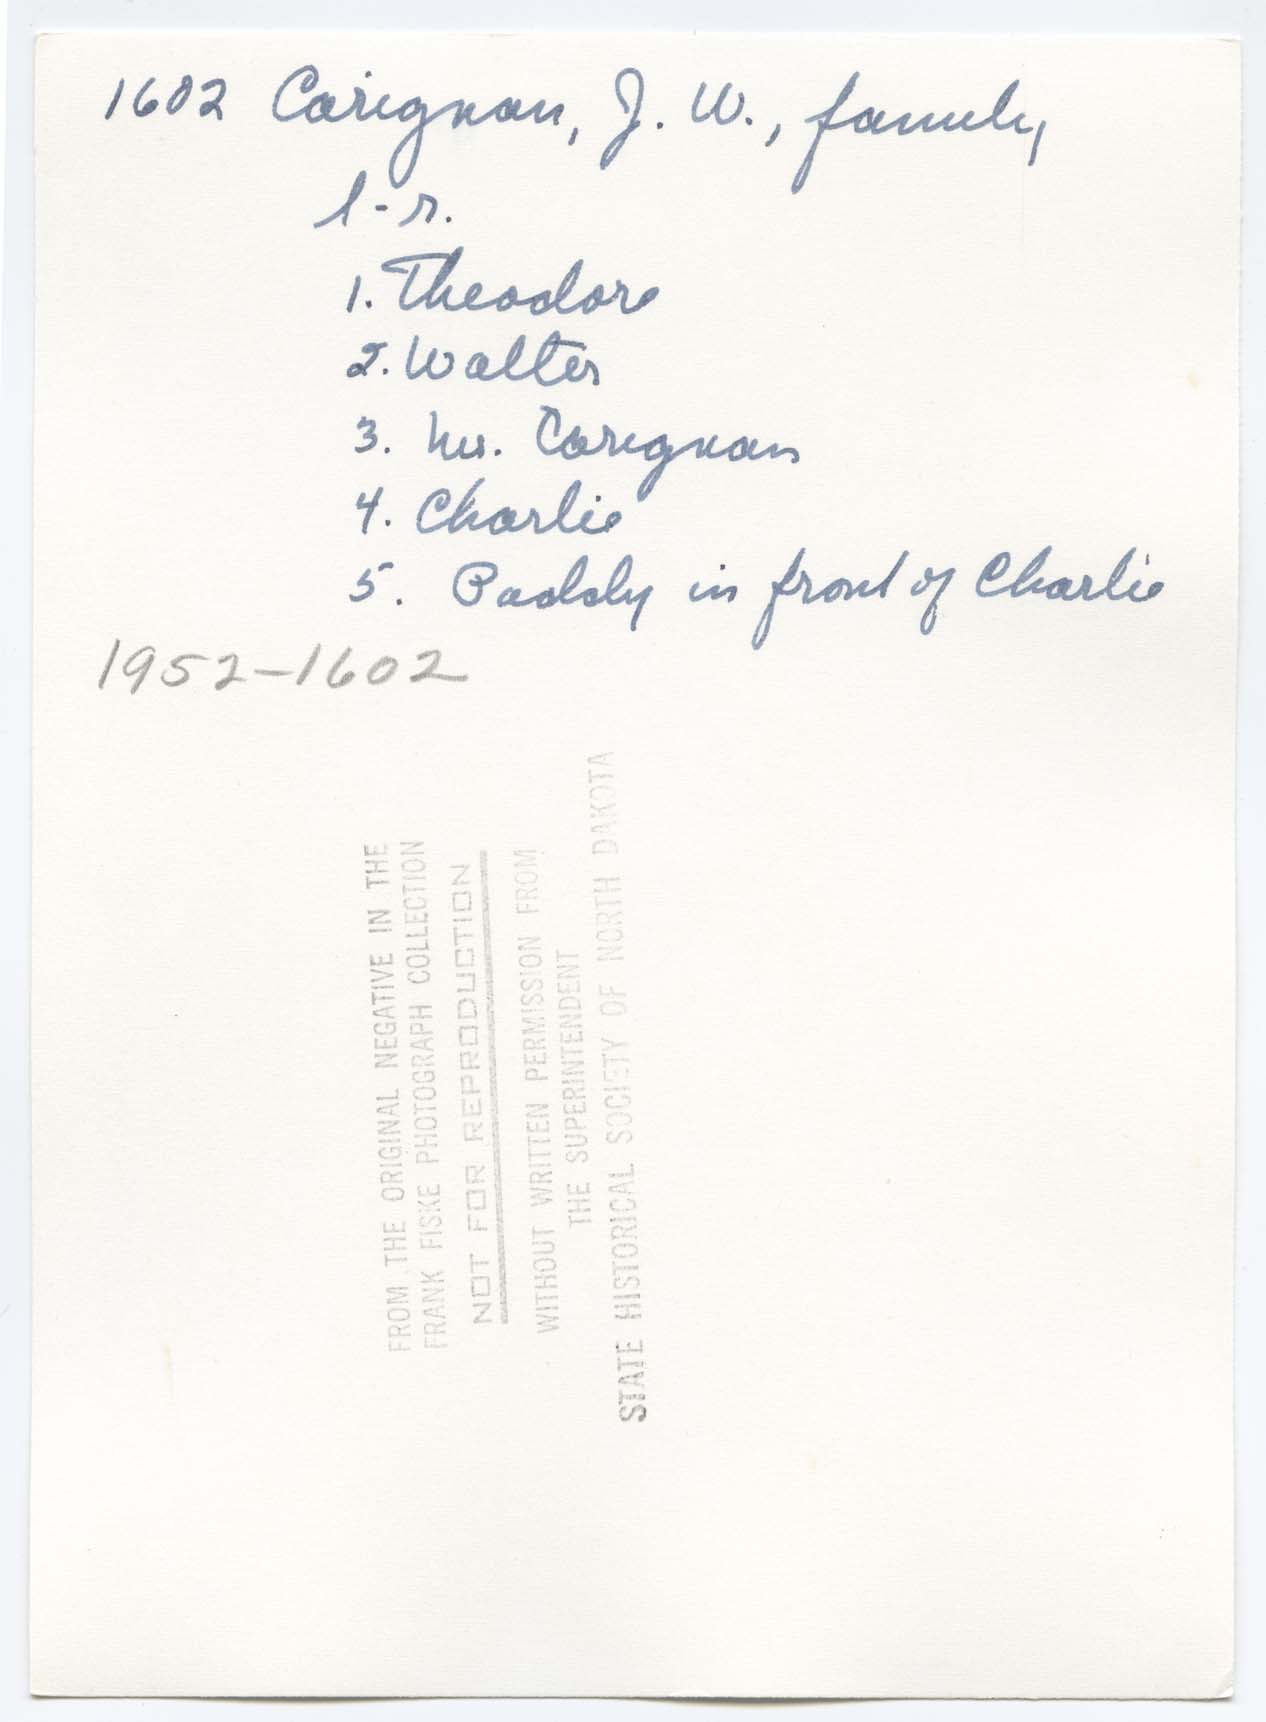 1602 Carignan, J. W., family
l-r.
1. Theodore
2. Walter
3. Mrs. Carignan
4. Charlie
5. Paddy in front of Charlie
1952-1602
FROM THE ORIGINAL NEGATIVE IN THE
FRANK FISKE PHOTOGRAPH COLLECTION
NOT FOR REPRODUCTION
WITHOUT WRITTEN PERMISSION FROM
THE SUPERINTENDENT
STATE HISTORICAL SOCIETY OF NORTH DAKOTA